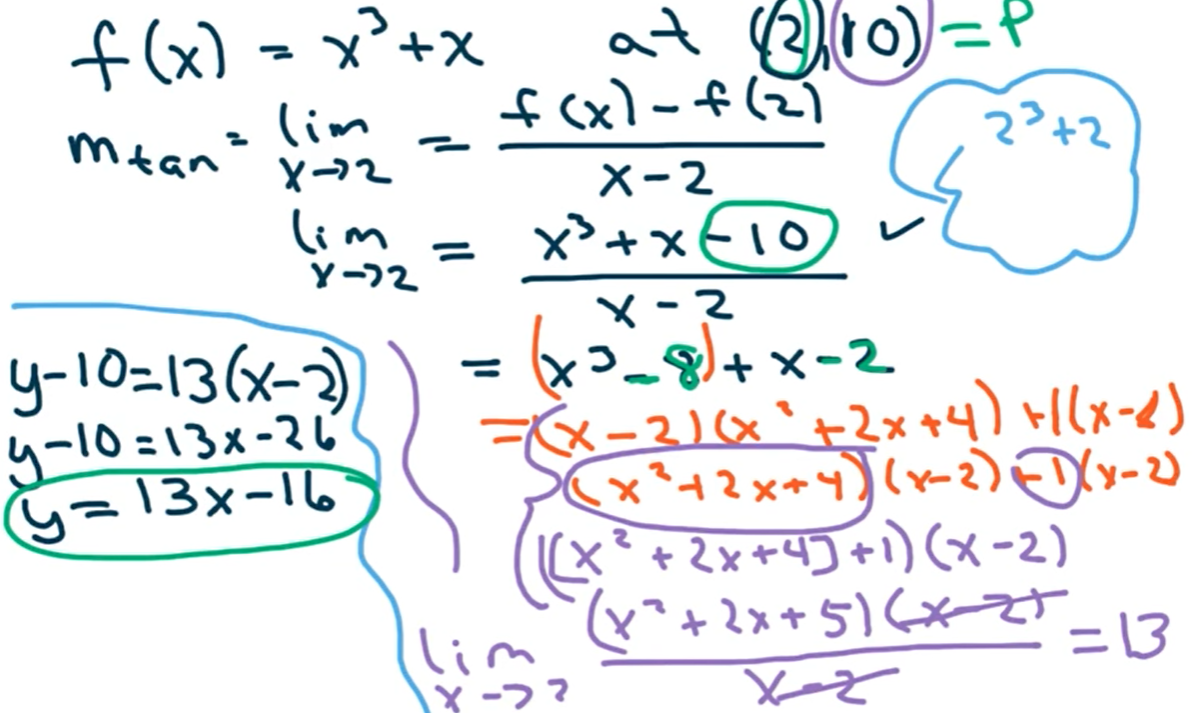 f(x) = x³+x at (2,10) = P
m tan = lim x→2 = f(x)-f(2) / x-2
2³+2
lim x→2 = x³+x-10 / x-2 ✓
= (x³-8)+x-2
=(x-2)(x²+2x+4)+1(x-2)
(x²+2x+4)(x-2)+1(x-2)
([x²+2x+4]+1)(x-2)
lim x→2 (x²+2x+5)(x-2) / x-2 = 13
y-10=13(x-2)
y-10=13x-26
y=13x-16